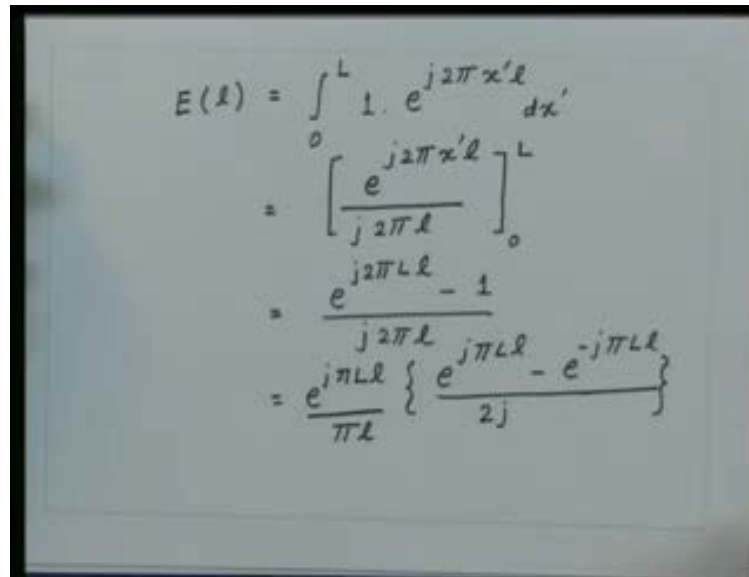 E(l) = ∫₀ᴸ 1. e^{j2πx'l} dx'
= [ e^{j2πx'l} / j2πl ]₀ᴸ
= (e^{j2πLl} - 1) / j2πl
= e^{jπLl} / πl { (e^{jπLl} - e^{-jπLl}) / 2j }